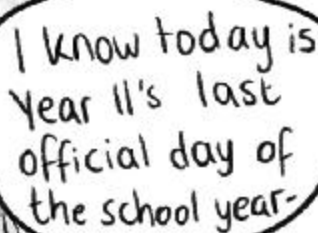 I know today is
Year 11's last
official day of
the school year-